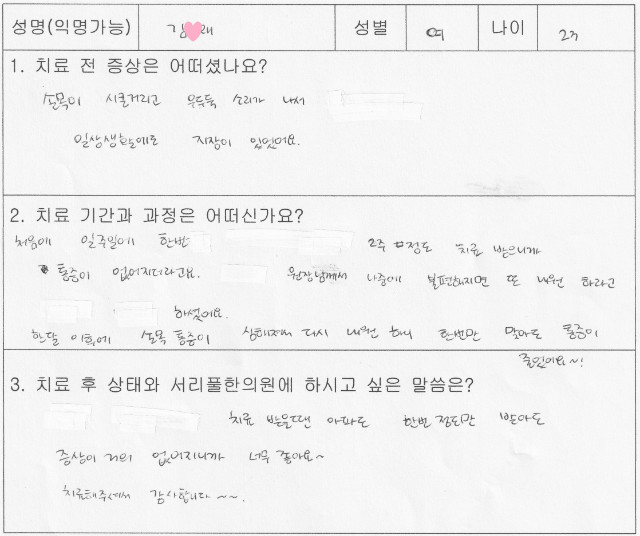 성명(익명가능) 김 래 성별 여 나이 27
1. 치료 전 증상은 어떠셨나요?
손목이 시큰거리고 우두둑 소리가 나서
일상생활에도 지장이 있었어요.
2. 치료 기간과 과정은 어떠신가요?
처음에 일주일에 한번 2주 정도 치료 받으니까
통증이 없어지더라고요. 원장님께서 나중에 불편해지면 또 내원 하라고
하셨어요.
한달 이후에 손목 통증이 심해져서 다시 내원 하니 한번만 맞아도 통증이
줄었어요~!
3. 치료 후 상태와 서리풀한의원에 하시고 싶은 말씀은?
치료 받을땐 아파도 한번 정도만 받아도
증상이 거의 없어지니까 너무 좋아요~
치료해주셔서 감사합니다~~.